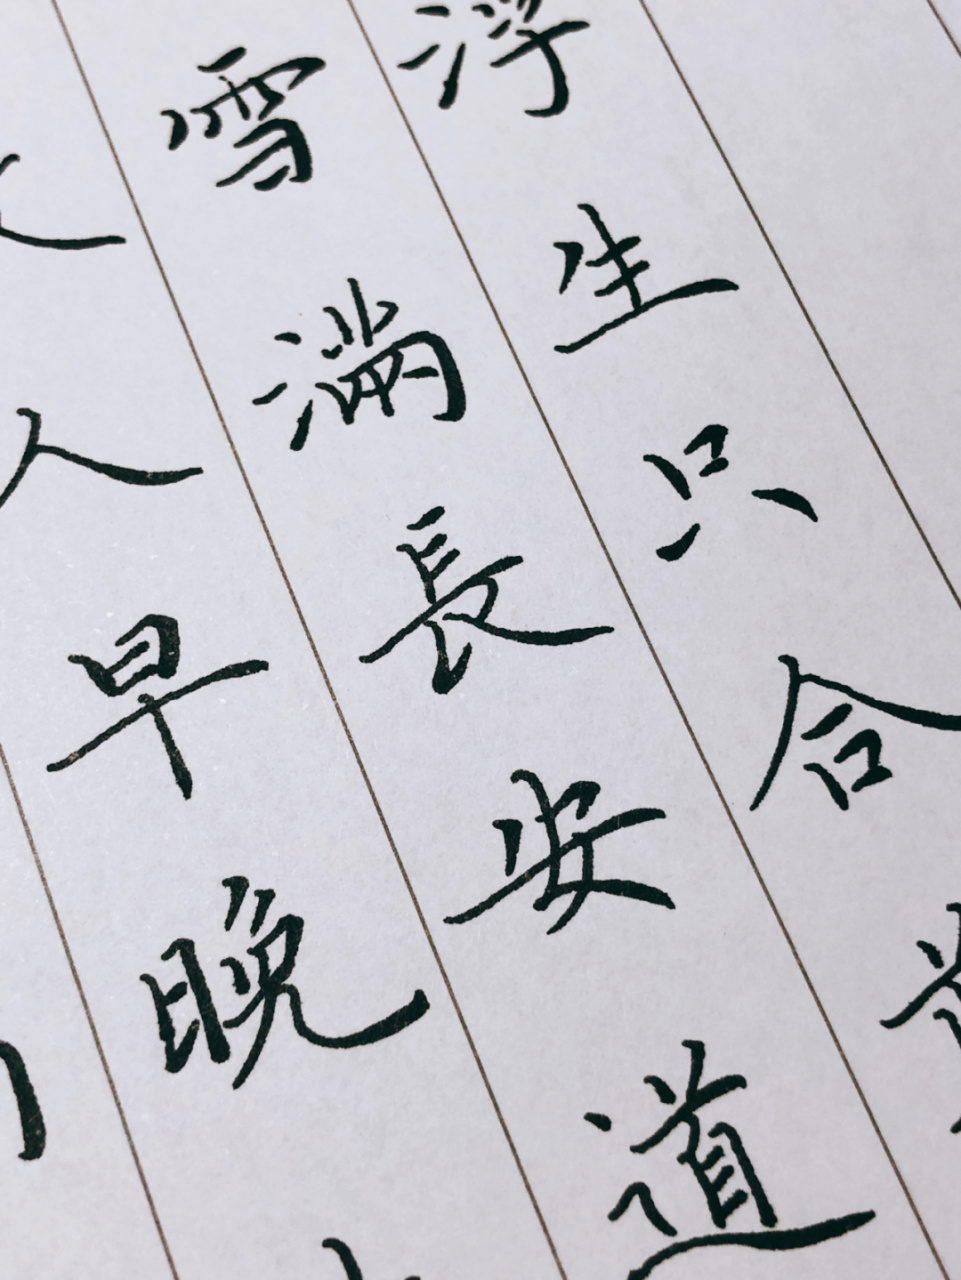 浮生只合
雪滿長安道
人早晚